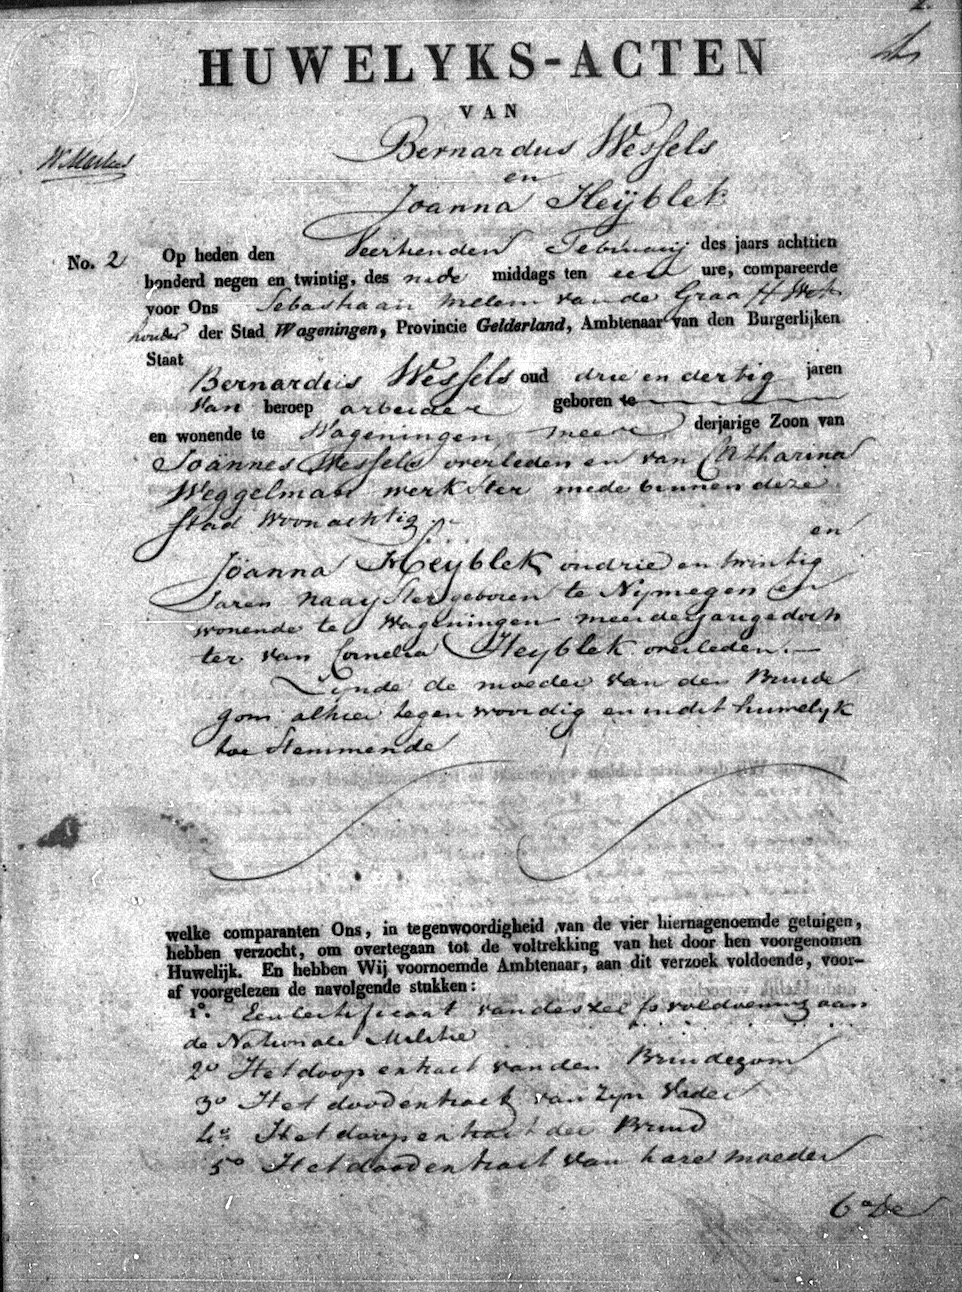 HUWELYKS-ACTEN
VAN
Bernardus Wessels
en
Joanna Heÿblek
No. 2 Op heden den Veertienden Februarij des jaars achttien
honderd negen en twintig, des na de middags ten een ure, compareerde
voor Ons Sebastiaan Melem van de Graaff Wet
houder der Stad Wageningen, Provincie Gelderland, Ambtenaar van den Burgerlijken
Staat
Bernardus Wessels oud drie en dertig jaren
van beroep arbeider geboren te
en wonende te Wageningen meer derjarige Zoon van
Joännes Wessels overleden en van Catharina
Weggelman werkster mede binnen deze
Stad woonachtig
en
Jöanna Heyblek oud drie en twintig
Jaren naayster geboren te Nymegen en
wonende te Wageningen meerderjarige doch
ter van Cornelia Heyblek overleden.
Zynde de moeder van den Bruide
gom alhier tegenwoordig en in dit huwelyk
toe Stemmende
welke comparanten Ons, in tegenwoordigheid van de vier hiernagenoemde getuigen,
hebben verzocht, om overtegaan tot de voltrekking van het door hen voorgenomen
Huwelijk. En hebben Wij voornoemde Ambtenaar, aan dit verzoek voldoende, voor-
af voorgelezen de navolgende stukken:
1o. Een Certificaat van deszelfs voldoening aan
de Nationale Militie
2o Het doop extract van den Bruidegom
3o Het dood extract van Zyn Vader
4o Het doop extract der Bruid
5o Het dood extract van hare moeder
6o De